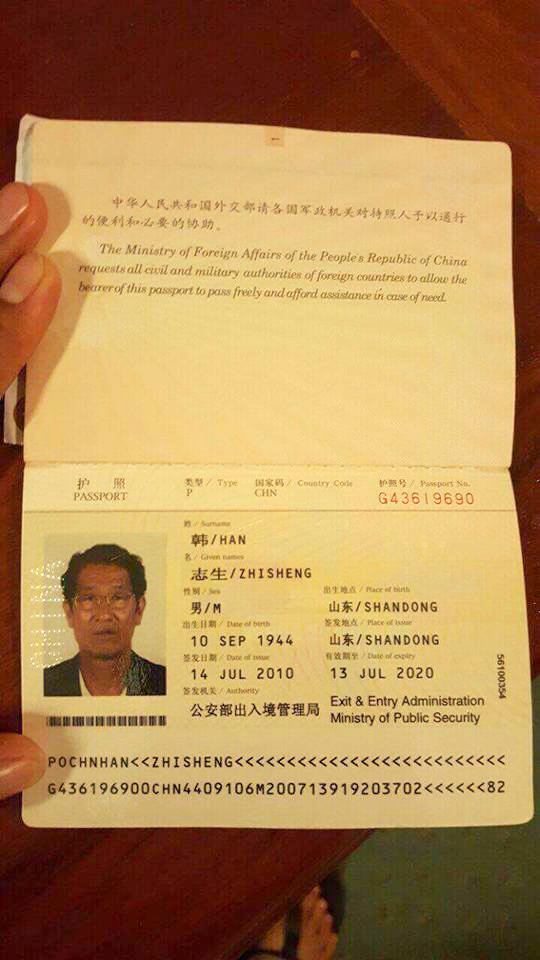 一
中华人民共和国外交部请各国军政机关对持照人予以通行
的便利和必要的协助。
The Ministry of Foreign Affairs of the People's Republic of China
requests all civil and military authorities of foreign countries to allow the
bearer of this passport to pass freely and afford assistance in case of need.
护 照 类型 / Type 国家码 / Country Code 护照号 / Passport No.
PASSPORT P CHN G43619690
姓 / Surname
韩/HAN
名 / Given names
志生/ZHISHENG
性别 / Sex 出生地点 / Place of birth
男/M 山东/SHANDONG
出生日期 / Date of birth 签发地点 / Place of issue
10 SEP 1944 山东/SHANDONG
签发日期 / Date of issue 有效期至 / Date of expiry
14 JUL 2010 13 JUL 2020
签发机关 / Authority
公安部出入境管理局 Exit & Entry Administration
Ministry of Public Security
56100354
POCHNHAN<<ZHISHENG<<<<<<<<<<<<<<<<<<<<<<<<<<
G436196900CHN4409106M200713919203702<<<<<<82